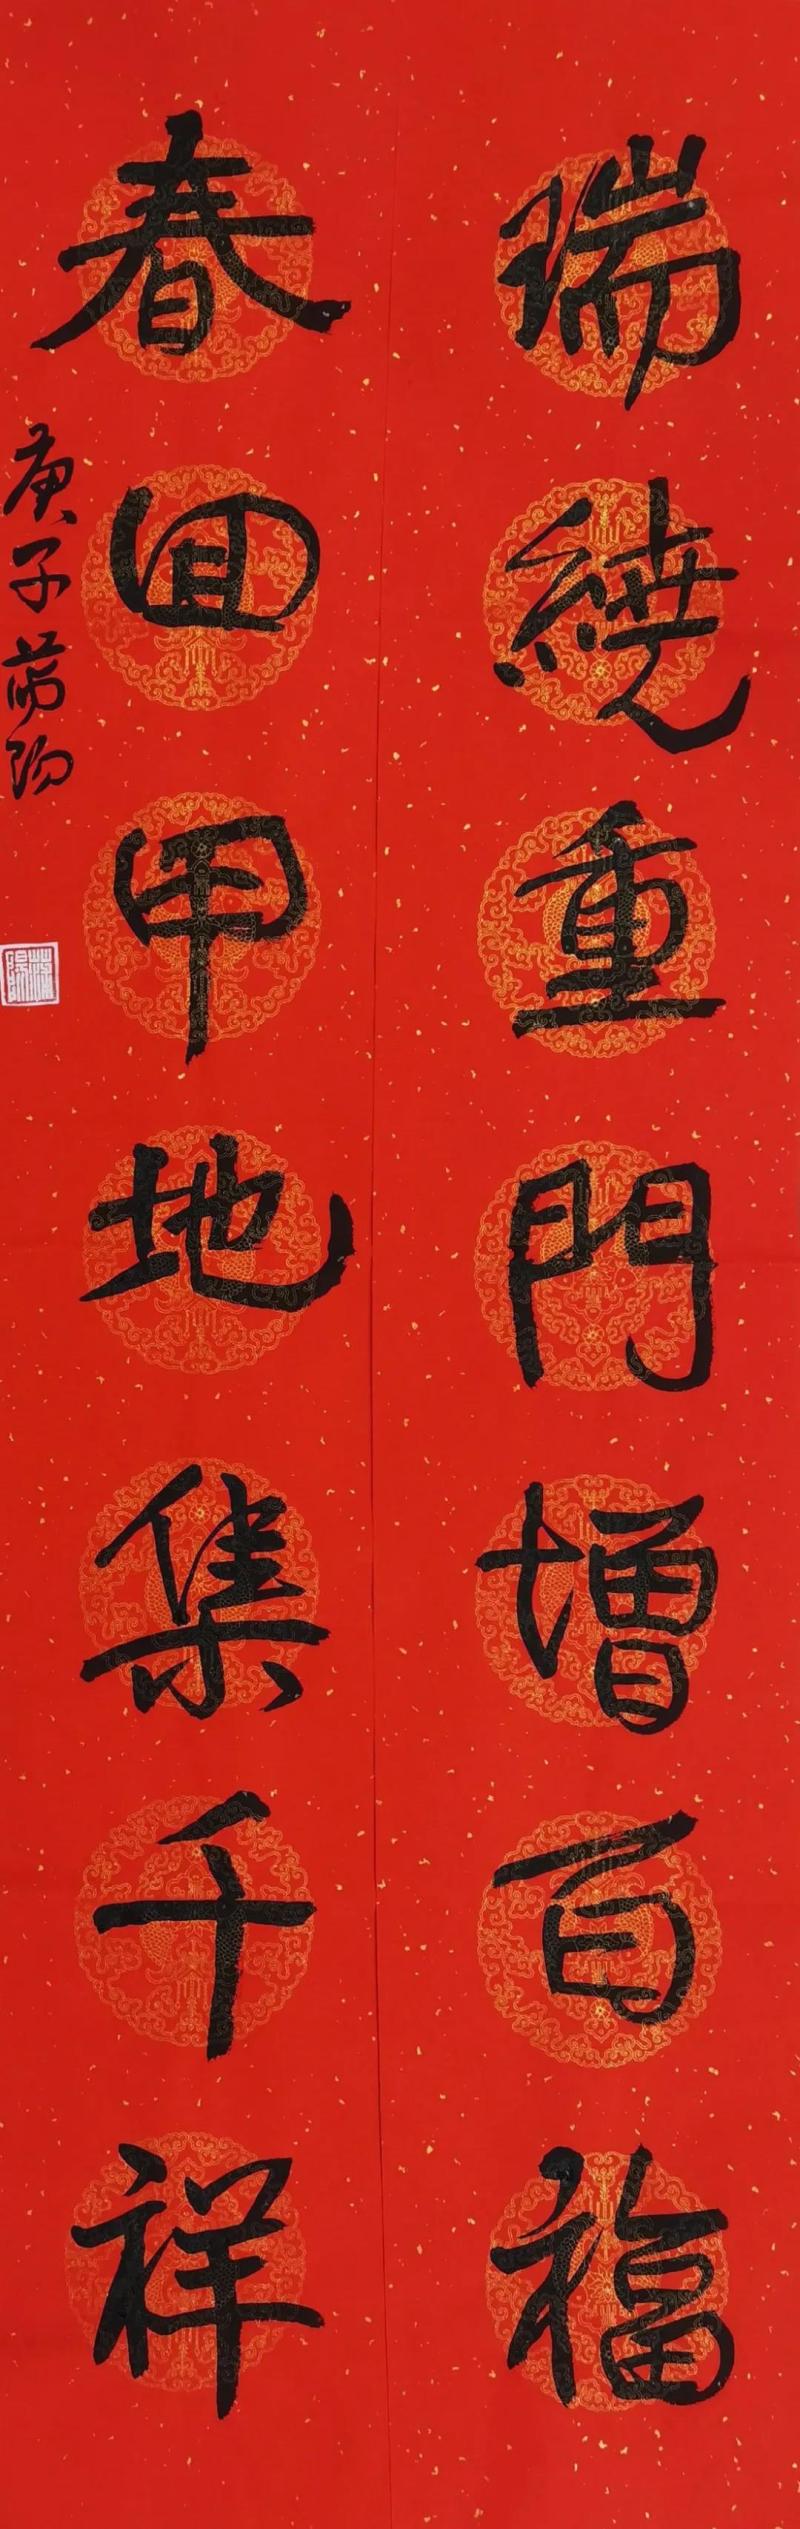 瑞繞重門增百福
春回甲地集千祥
庚子